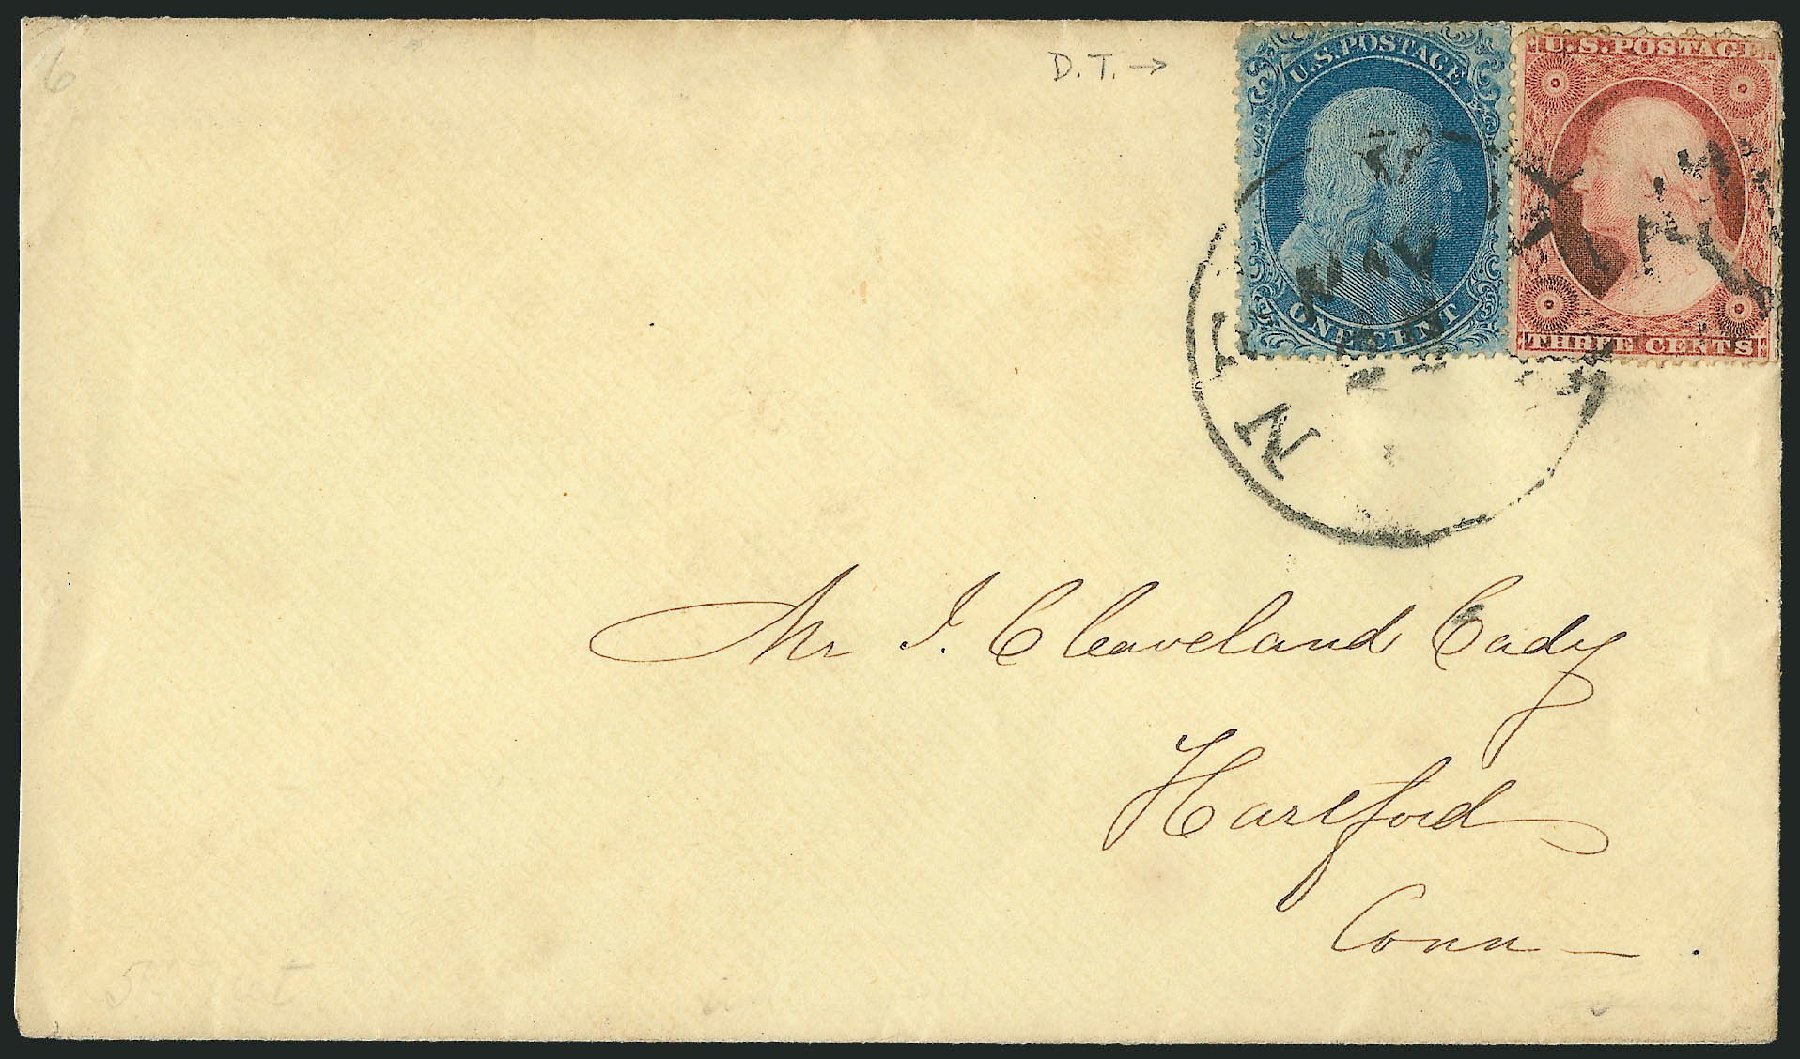 6
D. T. →
U.S. POSTAGE
ONE CENT
U.S. POSTAGE
THREE CENTS
N
MAY
Mr I. Cleveland Cady
Hartford
Conn